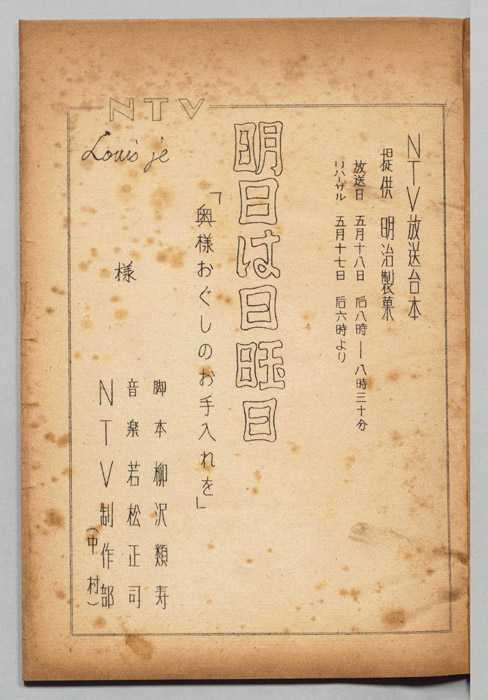 NTV
NTV放送台本
提供 明治製菓
放送日 五月十八日 后八時―八時三十分
リハーサル 五月十七日 后六時より
明日は日旺日
「奥様おぐしのお手入れを」
Louis je
様
脚本 柳沢類寿
音楽 若松正司
NTV制作部
(中村)